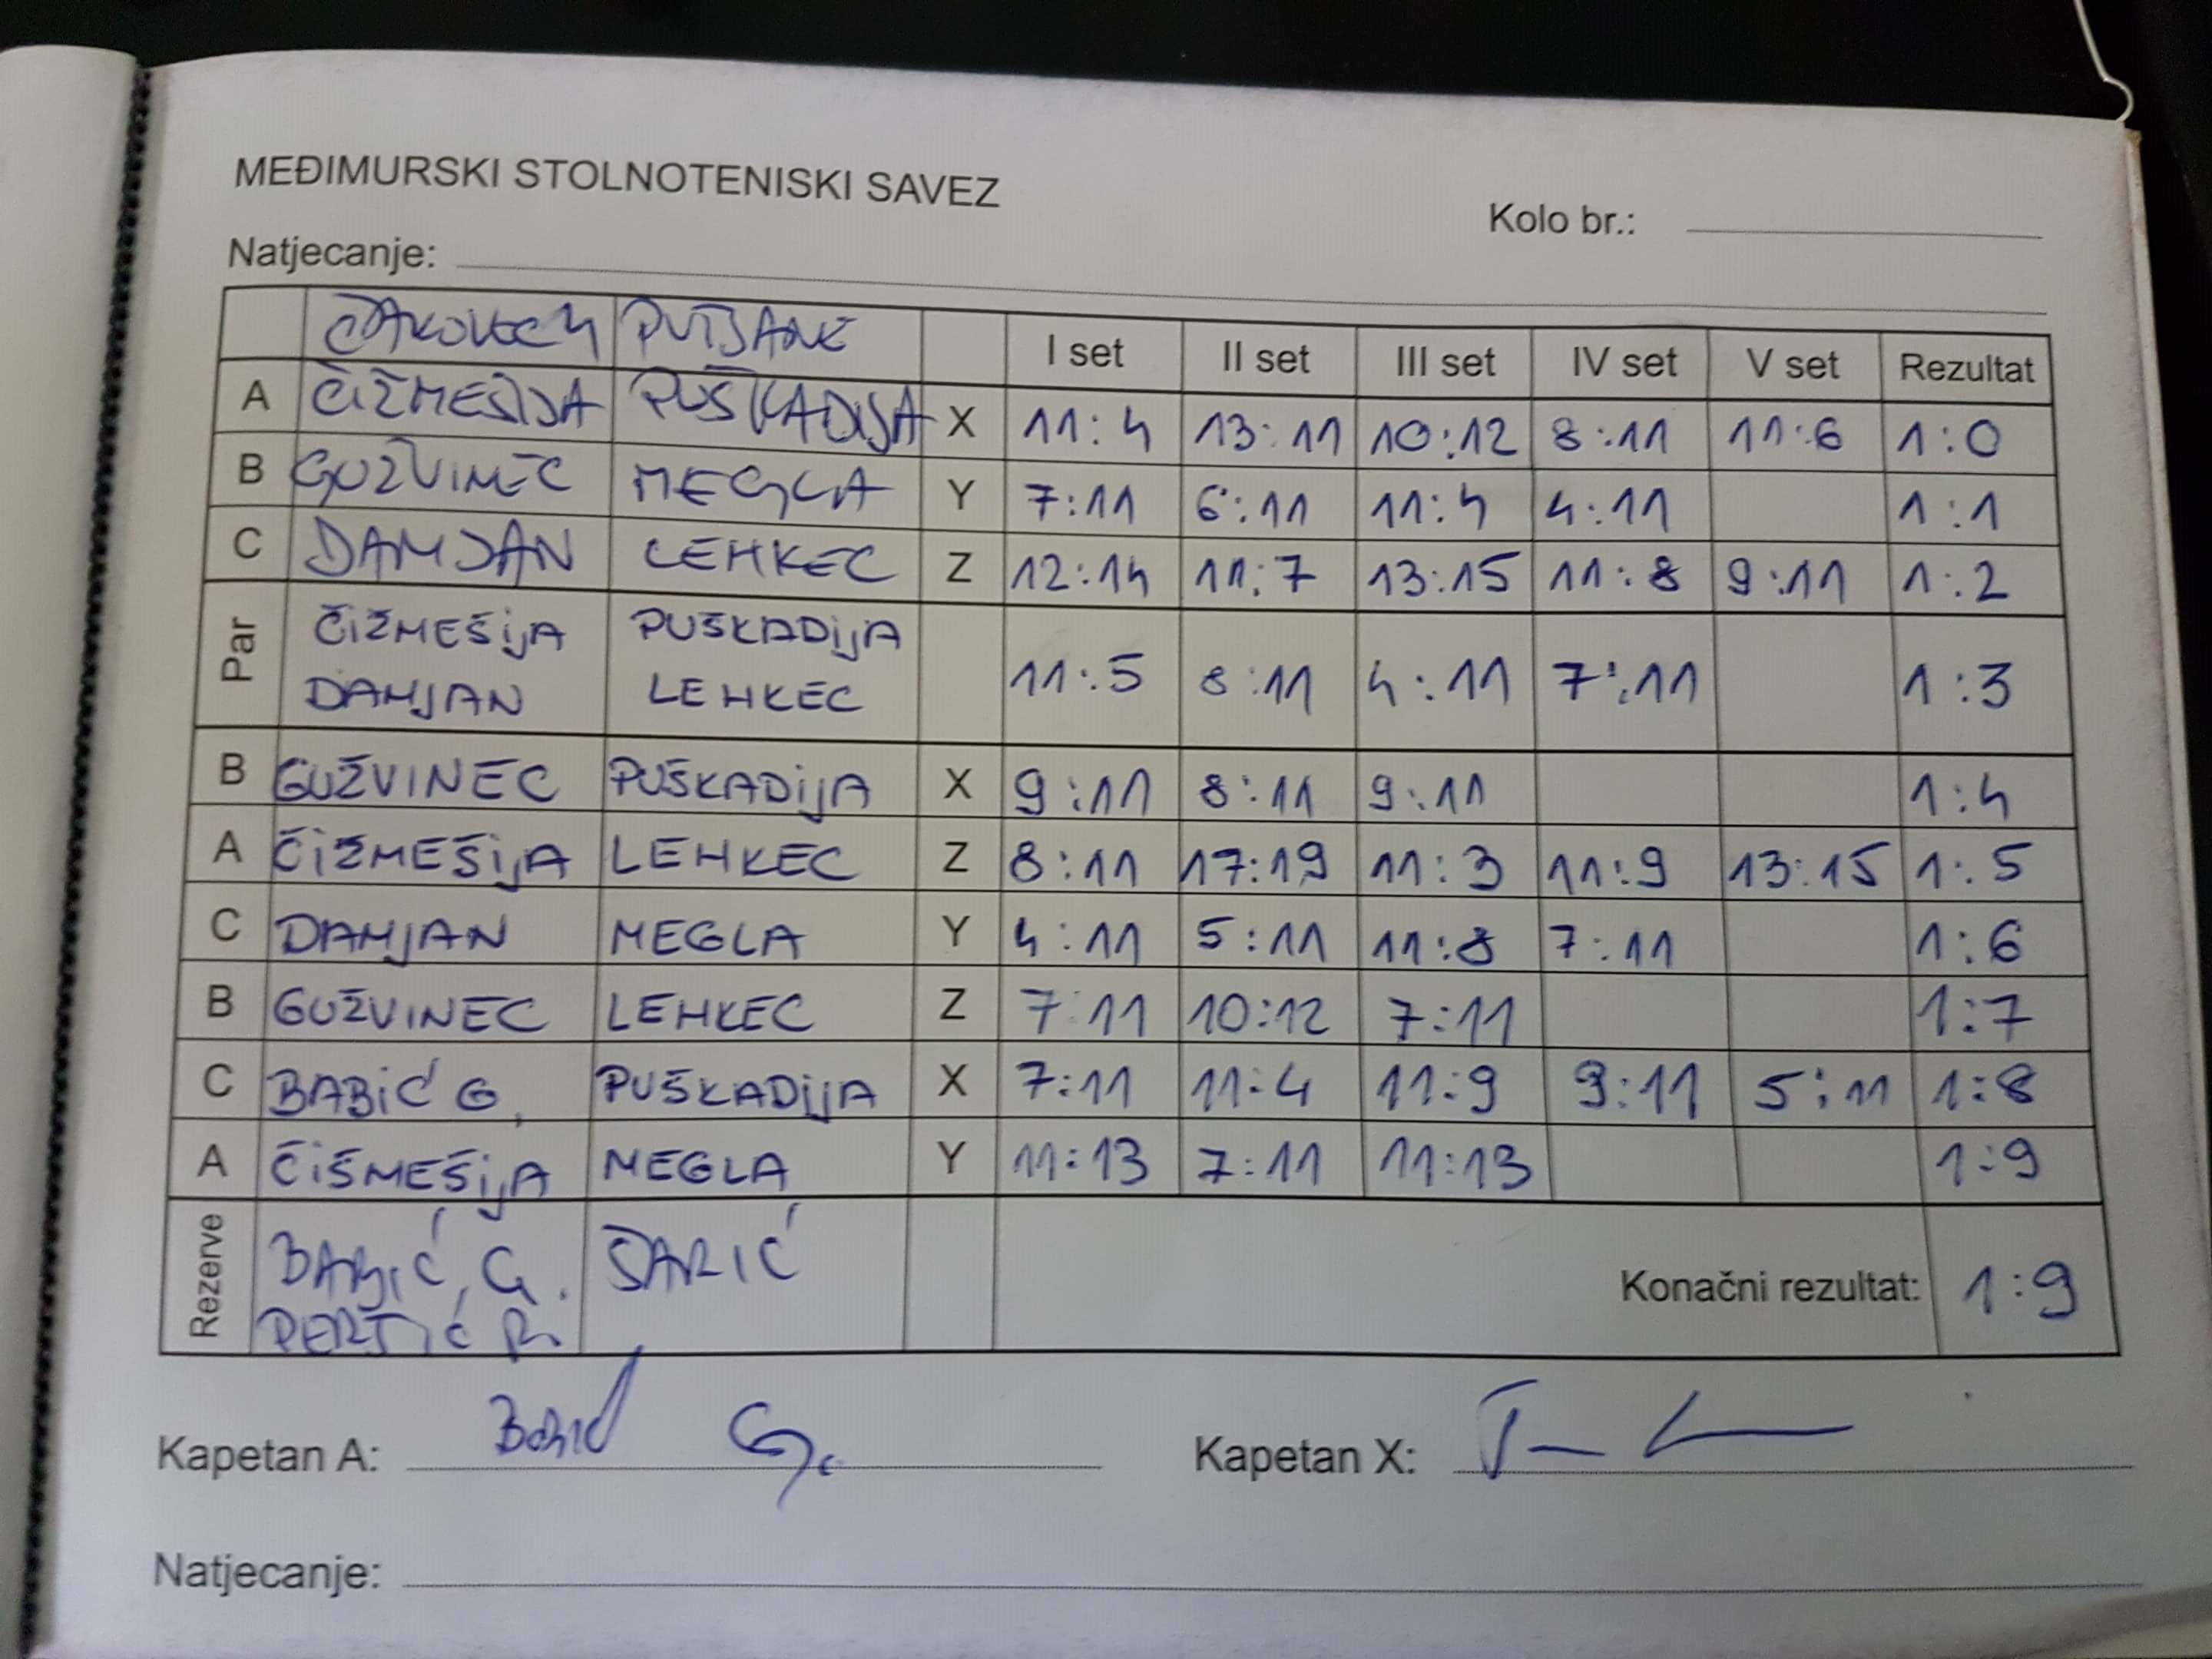 MEĐIMURSKI STOLNOTENISKI SAVEZ
Kolo br.:
Natjecanje:
ČAKOVEC 4 PUTJANE I set II set III set IV set V set Rezultat
A ČIŽMEŠIJA PUŠKADIJA X 11:4 13:11 10:12 8:11 11:6 1:0
B GUŽVINEC MEGLA Y 7:11 6:11 11:4 4:11 1:1
C DAMJAN LEHKEC Z 12:14 11:7 13:15 11:8 9:11 1:2
Par ČIŽMEŠIJA PUŠKADIJA 11:5 8:11 4:11 7:11 1:3
DAMJAN LEHKEC
B GUŽVINEC PUŠKADIJA X 9:11 8:11 9:11 1:4
A ČIŽMEŠIJA LEHKEC Z 8:11 17:19 11:3 11:9 13:15 1:5
C DAMJAN MEGLA Y 4:11 5:11 11:8 7:11 1:6
B GUŽVINEC LEHKEC Z 7:11 10:12 7:11 1:7
C BABIĆ G. PUŠKADIJA X 7:11 11:4 11:9 9:11 5:11 1:8
A ČIŠMEŠIJA MEGLA Y 11:13 7:11 11:13 1:9
Rezerve BABIĆ, G. ŠARIĆ Konačni rezultat: 1:9
R.
Kapetan A: Babić G. Kapetan X:
Natjecanje: